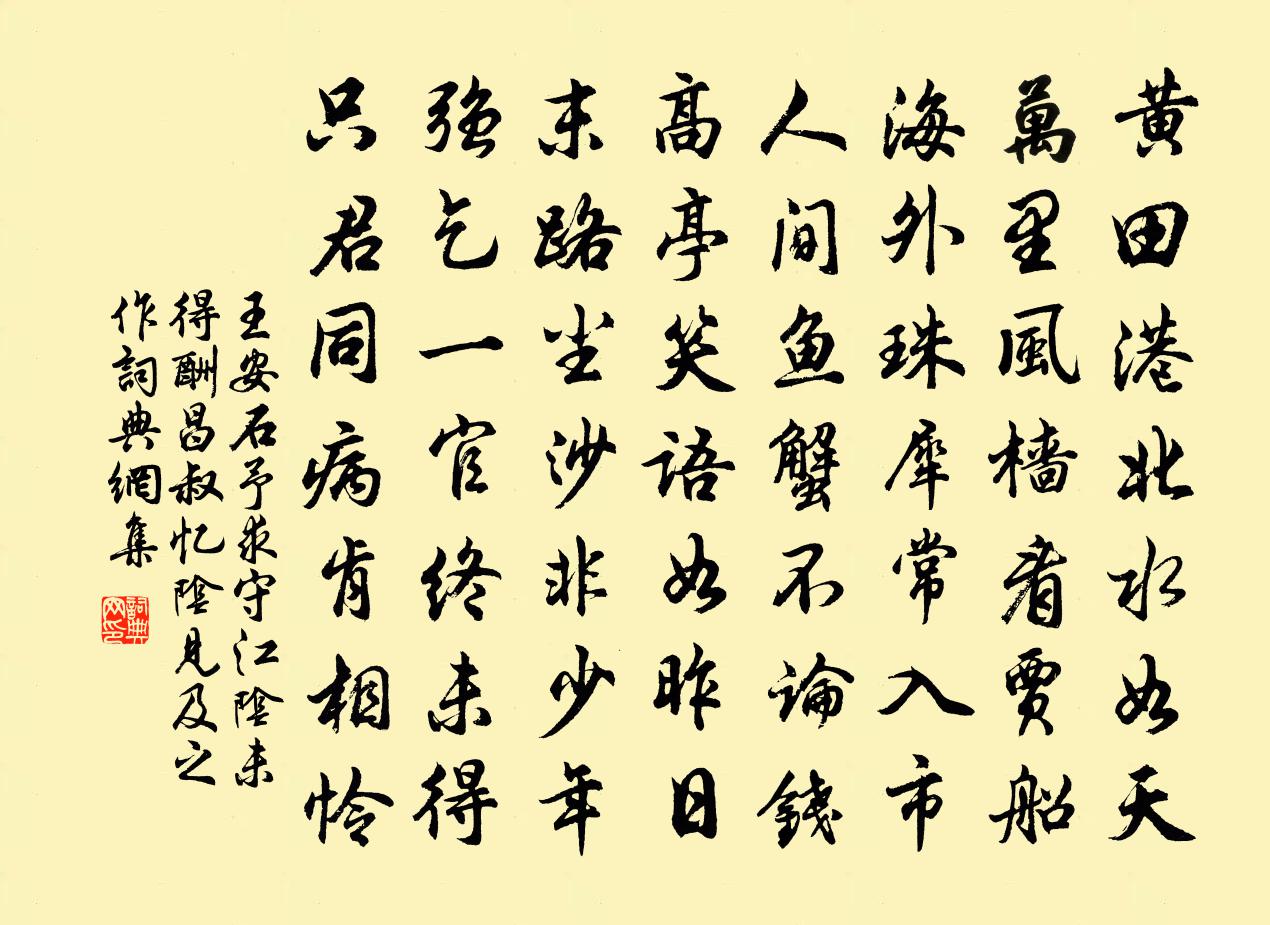 黄田港北水如天
萬里風檣看賈船
海外珠犀常入市
人間魚蟹不論錢
高亭笑語如昨日
末路塵沙非少年
强乞一官終未得
只君同病肯相憐
王安石予求守江陰未
得酬昌叔忆陰見及之
作詞典網集
詞典
网印